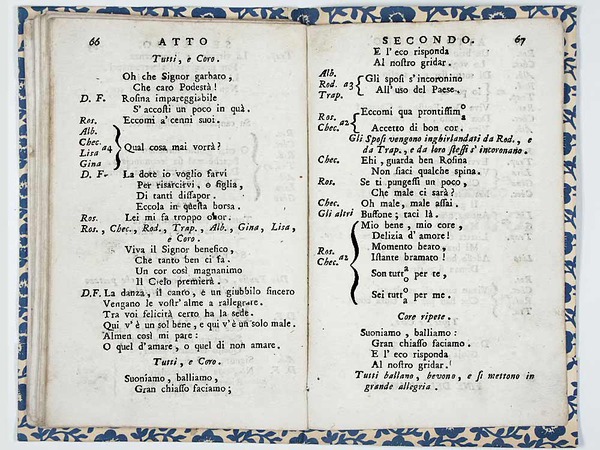 66 ATTO
Tutti, e Coro.
Oh che Signor garbato,
Che caro Podestà!
D. F. Rosina impareggiabile
S' accosti un poco in quà.
Ros. Eccomi a' cenni suoi.
Alb.
Chec.
Lisa a4 Qual cosa mai vorrà?
Gina
D. F. La dote io voglio farvi
Per risarcirvi, o figlia,
Di tanti dissapor.
Eccola in questa borsa.
Ros. Lei mi fa troppo onor.
Ros., Chec., Rod., Trap., Alb., Gina, Lisa,
e Coro.
Viva il Signor benefico,
Che tanto ben ci fa.
Un cor così magnanimo
Il Cielo premierà.
D.F. La danza, il canto, è un giubbilo sincero
Vengano le vostr' alme a rallegrare.
Tra voi felicità certo ha la sede.
Quì v' è un sol bene, e quì v' è un solo male.
Almen così mi pare:
O quel d'amare, o quel di non amare.
Tutti, e Coro.
Suoniamo, balliamo,
Gran chiasso faciamo;
SECONDO. 67
E l' eco risponda
Al nostro gridar.
Alb.
Rod. a3 Gli sposi s' incoronino
Trap. All' uso del Paese.
Ros. a2 Eccomi qua prontissim o a
Chec. Accetto di bon cor.
Gli Sposi vengono inghirlandati da Rod., e
da Trap., e da loro stessi s' incoronano.
Chec. Ehi, guarda ben Rosina
Non siaci qualche spina.
Ros. Se ti pungessi un poco,
Che male ci sarà?
Chec. Oh male, male assai.
Gli altri Buffone; taci là.
Mio bene, mio core,
Delizia d' amore!
Ros. Momento beato,
Chec. a2 Istante bramato!
Son tutt a o per te,
Sei tutt o a per me.
Core ripete.
Suoniamo, balliamo:
Gran chiasso faciamo.
E l' eco risponda
Al nostro gridar.
Tutti ballano, bevono, e si mettono in
grande allegria.